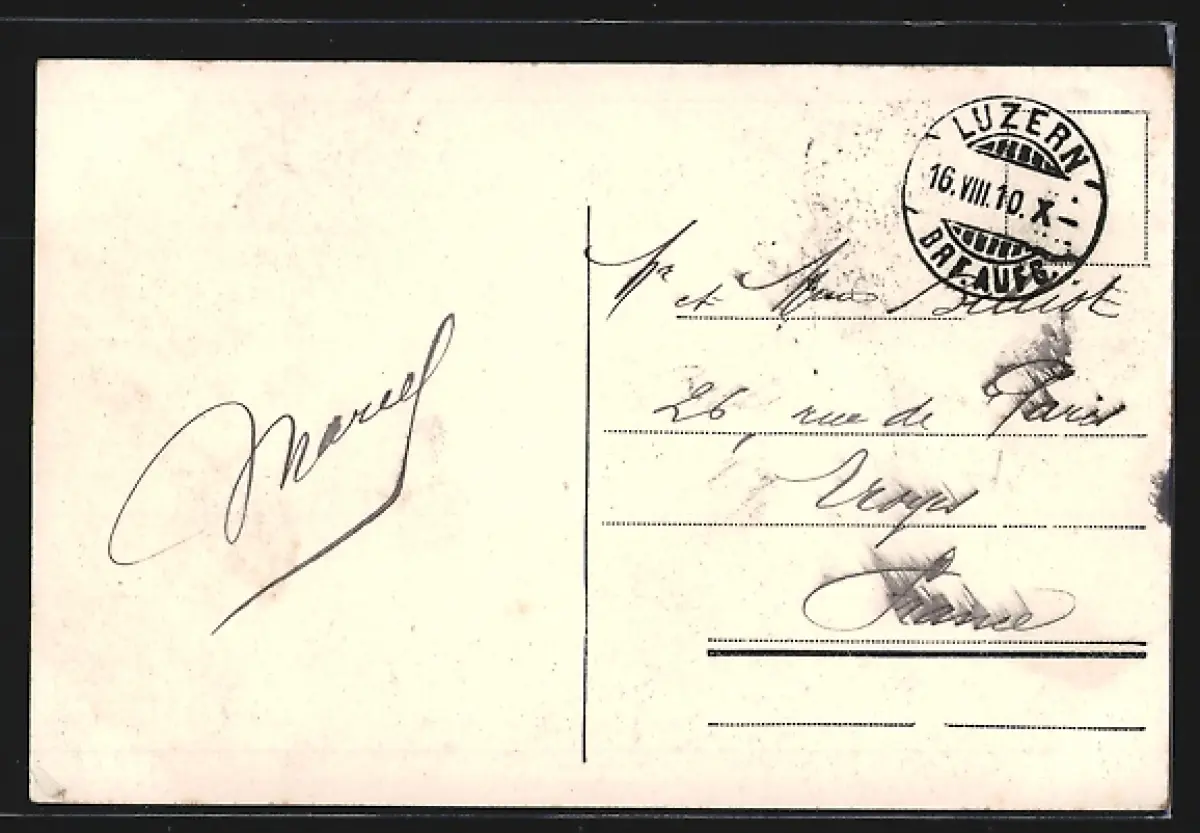 LUZERN
16.VIII.10. X–
BRF.AUFG.
Mr et Mme
26, rue de Paris
Troyes
France
Marcel